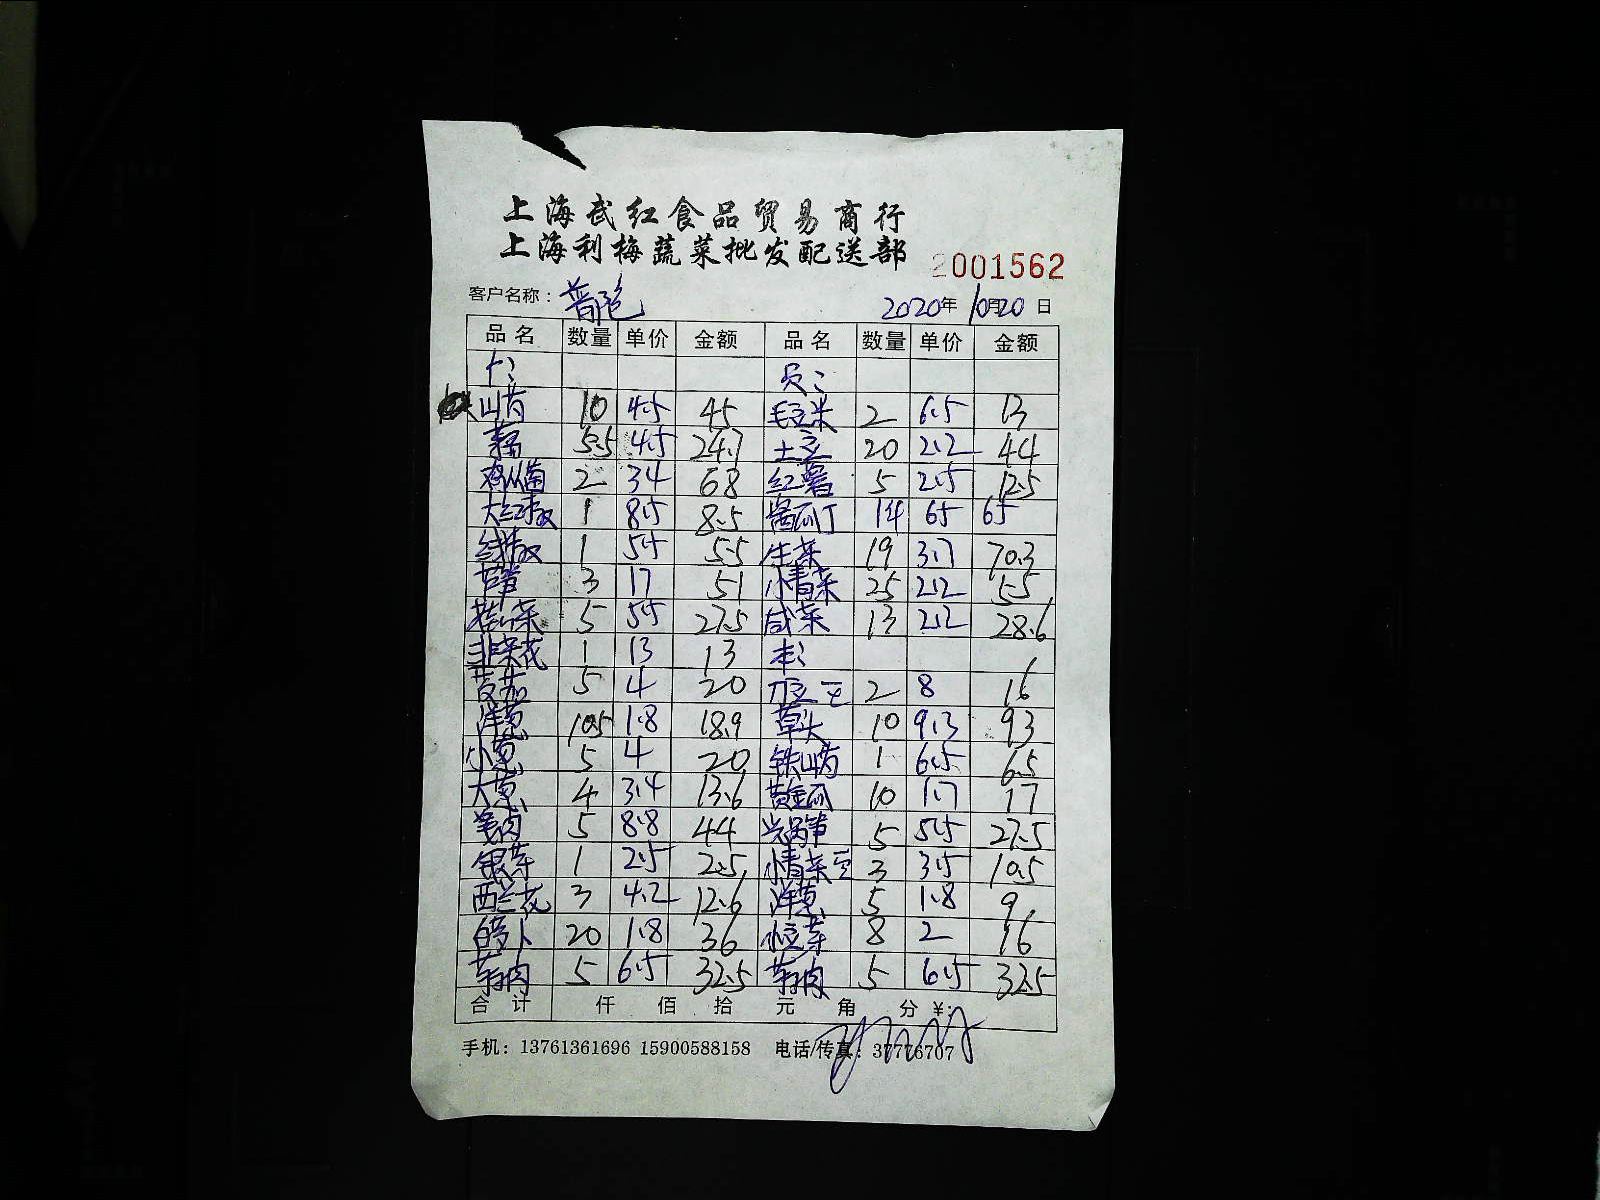 上海武红食品贸易商行
上海利梅蔬菜批发配送部
2001562
客户名称： 2020年10月20日
品名 数量 单价 金额 品名 数量 单价 金额
山药 10 4.5 45 毛豆米 2 6.5 13
藕 5.5 4.5 24.7 土豆 20 2.2 44
鸡枞菌 2 34 68 红薯 5 2.5 12.5
大红椒 1 8.5 8.5 酱瓜丁 65 65
线椒 1 5.5 5.5 生菜 19 3.7 70.3
芦笋 3 17 51 小青菜 25 2.2 55
5 5.5 27.5 咸菜 13 2.2 28.6
韭菜花 1 13 13 本：
茭茄 5 4 20 刀豆 2 8 16
洋葱 10.5 1.8 18.9 草头 10 9.3 93
小葱 5 4 20 铁山药 1 6.5 6.5
大葱 4 3.4 13.6 黄金瓜 10 1.7 17
笺肉 5 8.8 44 莴笋 5 5.5 27.5
银芽 1 2.5 2.5 小青菜 3 3.5 10.5
西兰花 3 4.2 12.6 洋葱 5 1.8 9
白萝卜 20 1.8 36 小豆芽 8 2 16
茅肉 5 6.5 32.5 茅肉 5 6.5 32.5
合计 仟 佰 拾 元 角 分 ¥:
手机：13761361696 15900588158 电话/传真：37776707